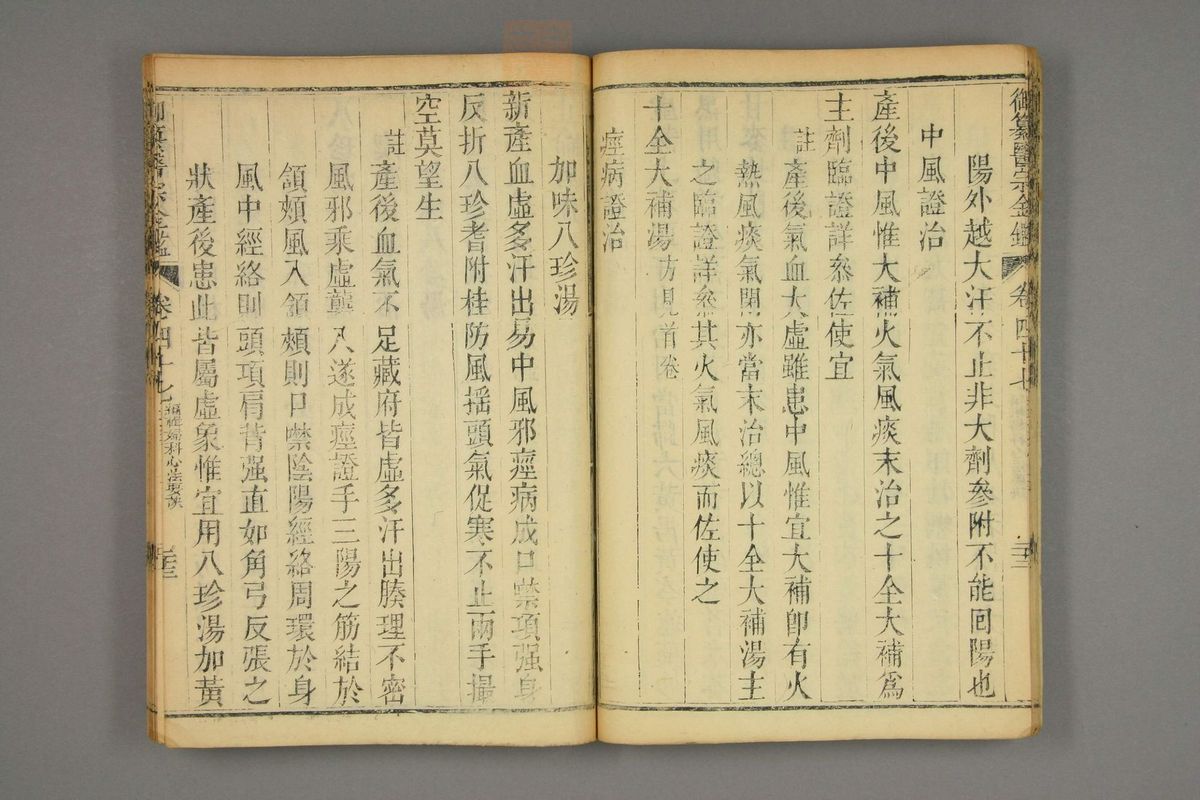 御纂醫宗金鑑 卷四十七
陽外越大汗不止非大劑參附不能回陽也
中風證治
產後中風惟大補火氣風痰末治之十全大補爲
主劑臨證詳叅佐使宜
註產後氣血大虛雖患中風惟宜大補卽有火
熱風痰氣閉亦當末治總以十全大補湯主
之臨證詳叅其火氣風痰而佐使之
十全大補湯方見首卷
痙病證治
加味八珍湯
新產血虛多汗出易中風邪痙病成口噤項强身
反折八珍耆附桂防風摇頭氣促寒不止兩手撮
空莫望生
註產後血氣不足藏府皆虛多汗出腠理不密
風邪乘虛襲入遂成痙證手三陽之筋結於
頷頰風入頷頰則口噤陰陽經絡周環於身
風中經絡則頭項肩背强直如角弓反張之
狀產後患此皆屬虛象惟宜用八珍湯加黃
御纂醫宗金鑑 卷四十七 編輯婦科心法要訣